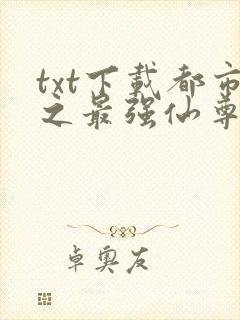 txt下载都市
之最强仙尊
卓奥友